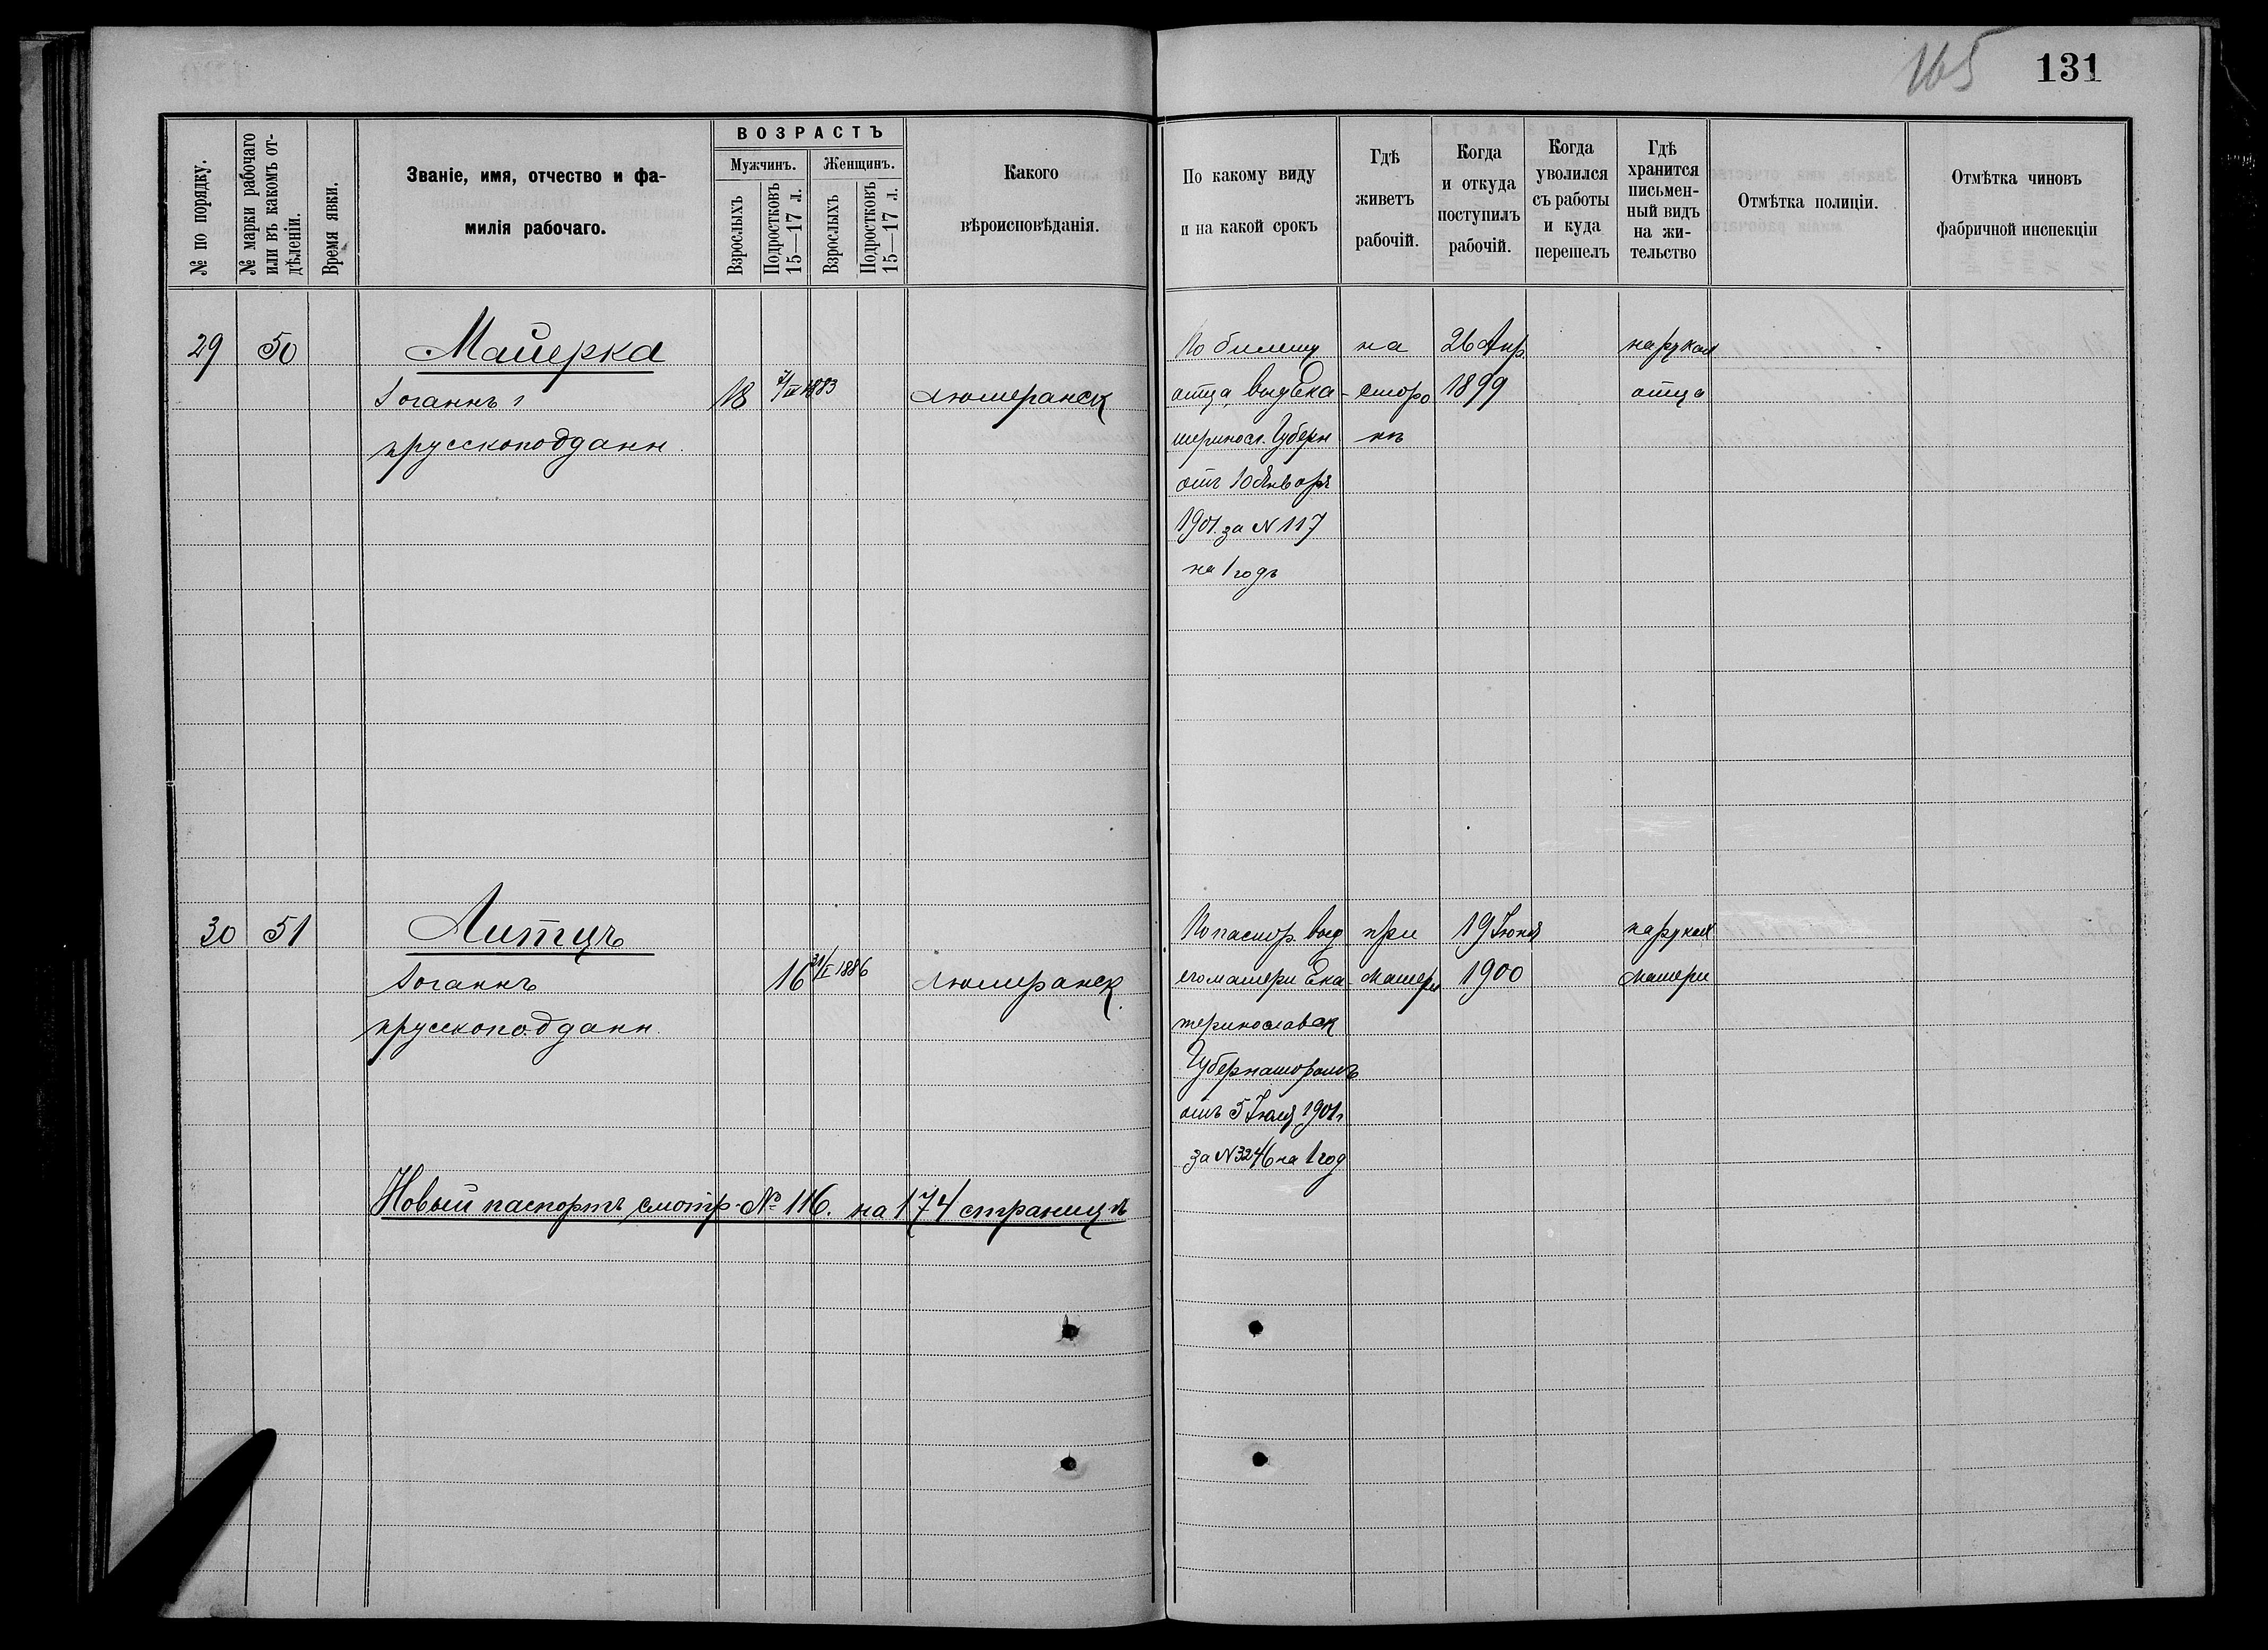 165 131
№ по порядку.
№ марки рабочаго
или въ какомъ от-
дѣленіи.
Время явки.
Званіе, имя, отчество и фа-
милія рабочаго.
ВОЗРАСТЪ
Мужчинъ. Женщинъ.
Взрослыхъ
Подростковъ
15—17 л.
Взрослыхъ
Подростковъ
15—17 л.
Какого
вѣроисповѣданія.
По какому виду
и на какой срокъ
Гдѣ
живетъ
рабочій.
Когда
и откуда
поступилъ
рабочій.
Когда
уволился
съ работы
и куда
перешелъ
Гдѣ
хранится
письмен-
ный видъ
на жи-
тельство
Отмѣтка полиціи.
Отмѣтка чиновъ
фабричной инспекціи
29 50 Майерка
Іоганнъ 18 1883 лютеранск
прусскоподданн.
По билету
отца, выд Ека-
теринос. Губерн
отъ 10 Января
1901. за N 117
на 1 годъ
на
сторо
нѣ
26 Апр.
1899
на руках
отца
30 51 Литцъ
Іоганнъ 16 31/I 1886 лютеранск.
прусскоподданн.
По паспор. выд
его матери Ека-
теринославск
Губернаторомъ
отъ 5 Іюля 1901 г
за N 3246 на 1 год
при
матери
19 Іюня
1900
на руках
матери
Новый паспортъ смотр. № 116. на 174 страницѣ